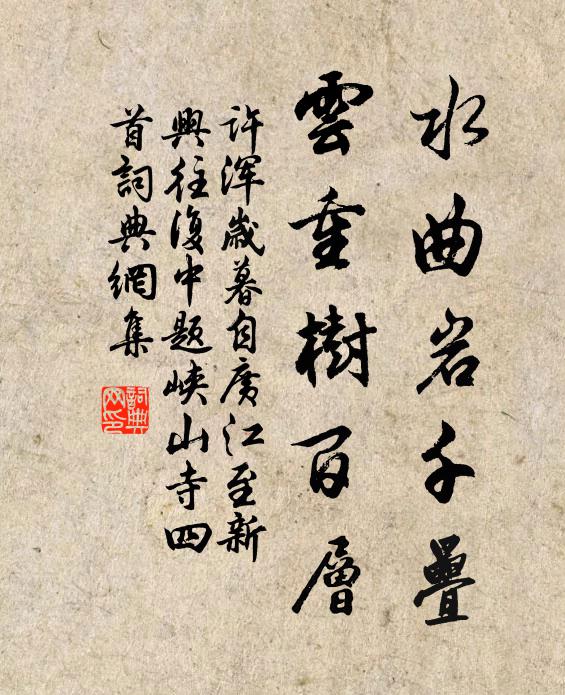 水曲岩千疊
雲重樹百層
許浑歲暮自廣江至新
興往復中題峽山寺四
首詞典網集
詞典网印